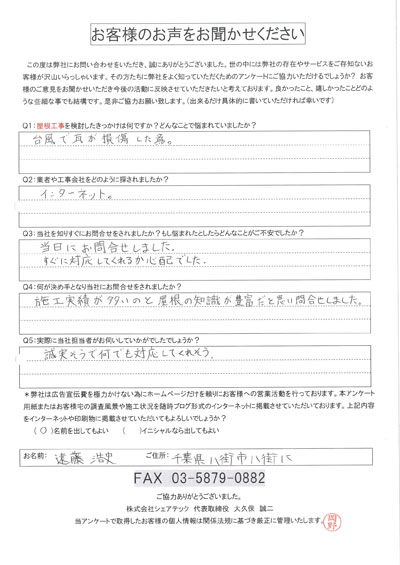 お客様のお声をお聞かせください
この度は弊社にお問い合わせをいただき、誠にありがとうございました。世の中には弊社の存在やサービスをご存知ないお
客様が沢山いらっしゃいます。その方たちに弊社をよく知っていただくためのアンケートにご協力いただけるでしょうか? お客
様のご意見をお聞かせいただき今後の活動に反映させていただきたいと考えております。良かったこと、嬉しかったことどのよ
うな些細な事でも結構です。是非ご協力お願い致します。(出来るだけ具体的に書いていただければ幸いです)
Q1:屋根工事を検討したきっかけは何ですか?どんなことで悩まれていましたか?
台風で瓦が損傷した為。
Q2:業者や工事会社をどのように探されましたか?
インターネット。
Q3:当社を知りすぐにお問合せをされましたか?もし悩まれたとしたらどんなことがご不安でしたか?
当日にお問合せしました。
すぐに対応してくれるか心配でした。
Q4:何が決め手となり当社にお問合せをされましたか?
施工実績が多いのと屋根の知識が豊富だと思い問合せしました。
Q5:実際に当社担当者がお伺いしていかがでしたでしょうか?
誠実そうで何でも対応してくれそう。
*弊社は広告宣伝費を極力かけない為にホームページだけを頼りにお客様への営業活動を行っております。本アンケート
用紙またはお客様宅の調査風景や施工状況を随時ブログ形式のインターネットに掲載させていただいております。上記内容
をインターネットや印刷物に掲載させていただいてもよろしいでしょうか?
(〇)名前を出してもよい ( )イニシャルなら出してもよい
お名前: 遠藤 浩史 ご住所: 千葉県八街市八街に
FAX 03-5879-0882
ご協力ありがとうございました。
株式会社シェアテック 代表取締役 大久保 誠二
当アンケートで取得したお客様の個人情報は関係法規に基づき厳正に管理いたします。
岡野